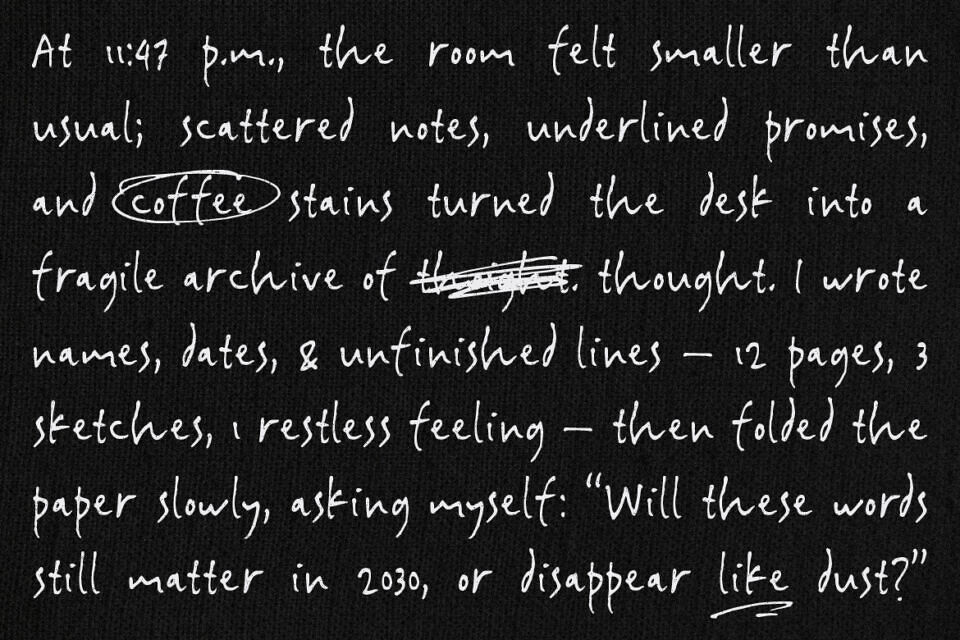 At 11:47 p.m., the room felt smaller than
usual; scattered notes, underlined promises,
and coffee stains turned the desk into a
fragile archive of thought. I wrote
names, dates, & unfinished lines — 12 pages, 3
sketches, 1 restless feeling — then folded the
paper slowly, asking myself: “Will these words
still matter in 2030, or disappear like dust?”